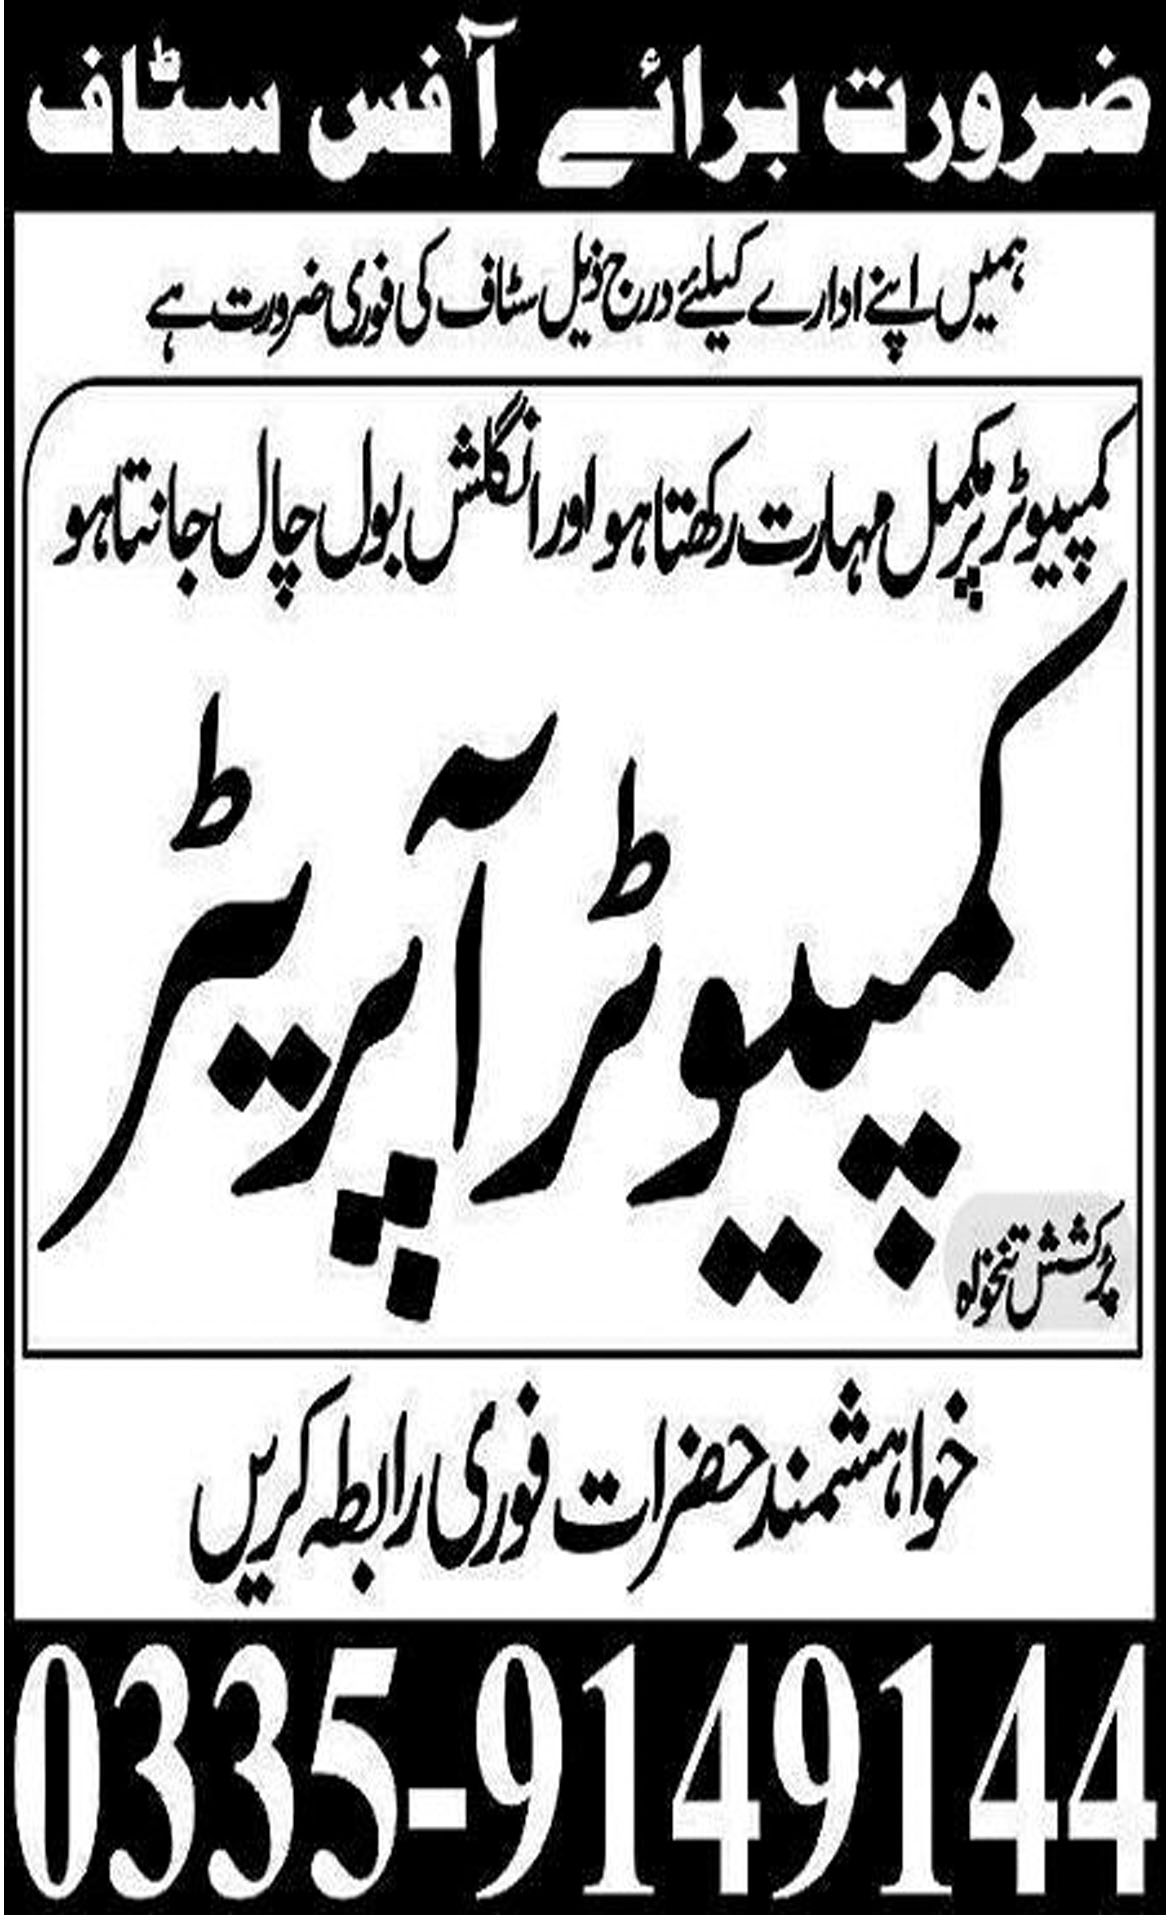 ضرورت برائے آفس سٹاف
ہمیں اپنے ادارے کیلئے درج ذیل سٹاف کی فوری ضرورت ہے
کمپیوٹر پر مکمل مہارت رکھتا ہو اور انگلش بول چال جانتا ہو
کمپیوٹر آپریٹر
پرکشش تنخواہ
خواہشمند حضرات فوری رابطہ کریں
0335-9149144